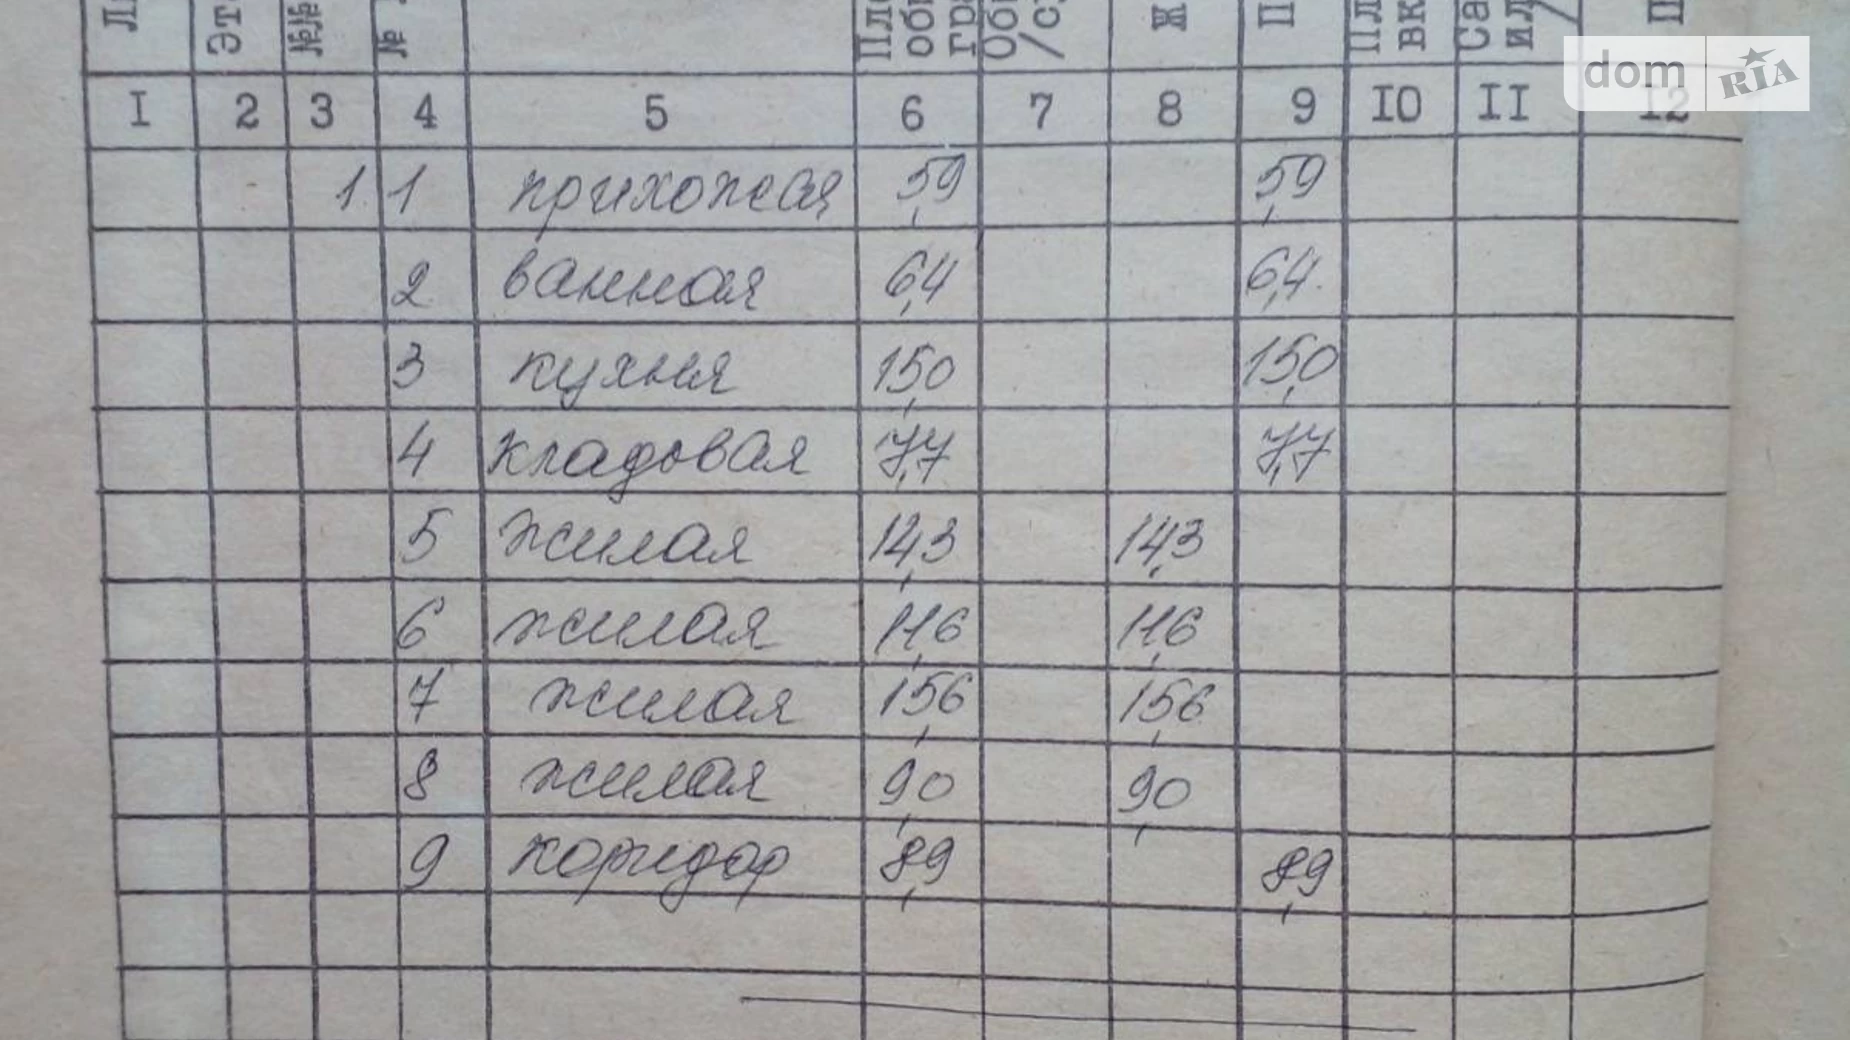 Эт
№№
№
Пл
об
гр
Об
/с
Ж
П
Пл
вк
Са
ил
/
П
dom RIA
I 2 3 4 5 6 7 8 9 IO II I2
1. 1 прихожая 5,9 5,9
2 ванная 6,4 6,4
3 кухня 15,0 15,0
4 кладовая 7,7 7,7
5 жилая 14,3 14,3
6 жилая 11,6 11,6
7 жилая 15,6 15,6
8 жилая 9,0 9,0
9 коридор 8,9 8,9